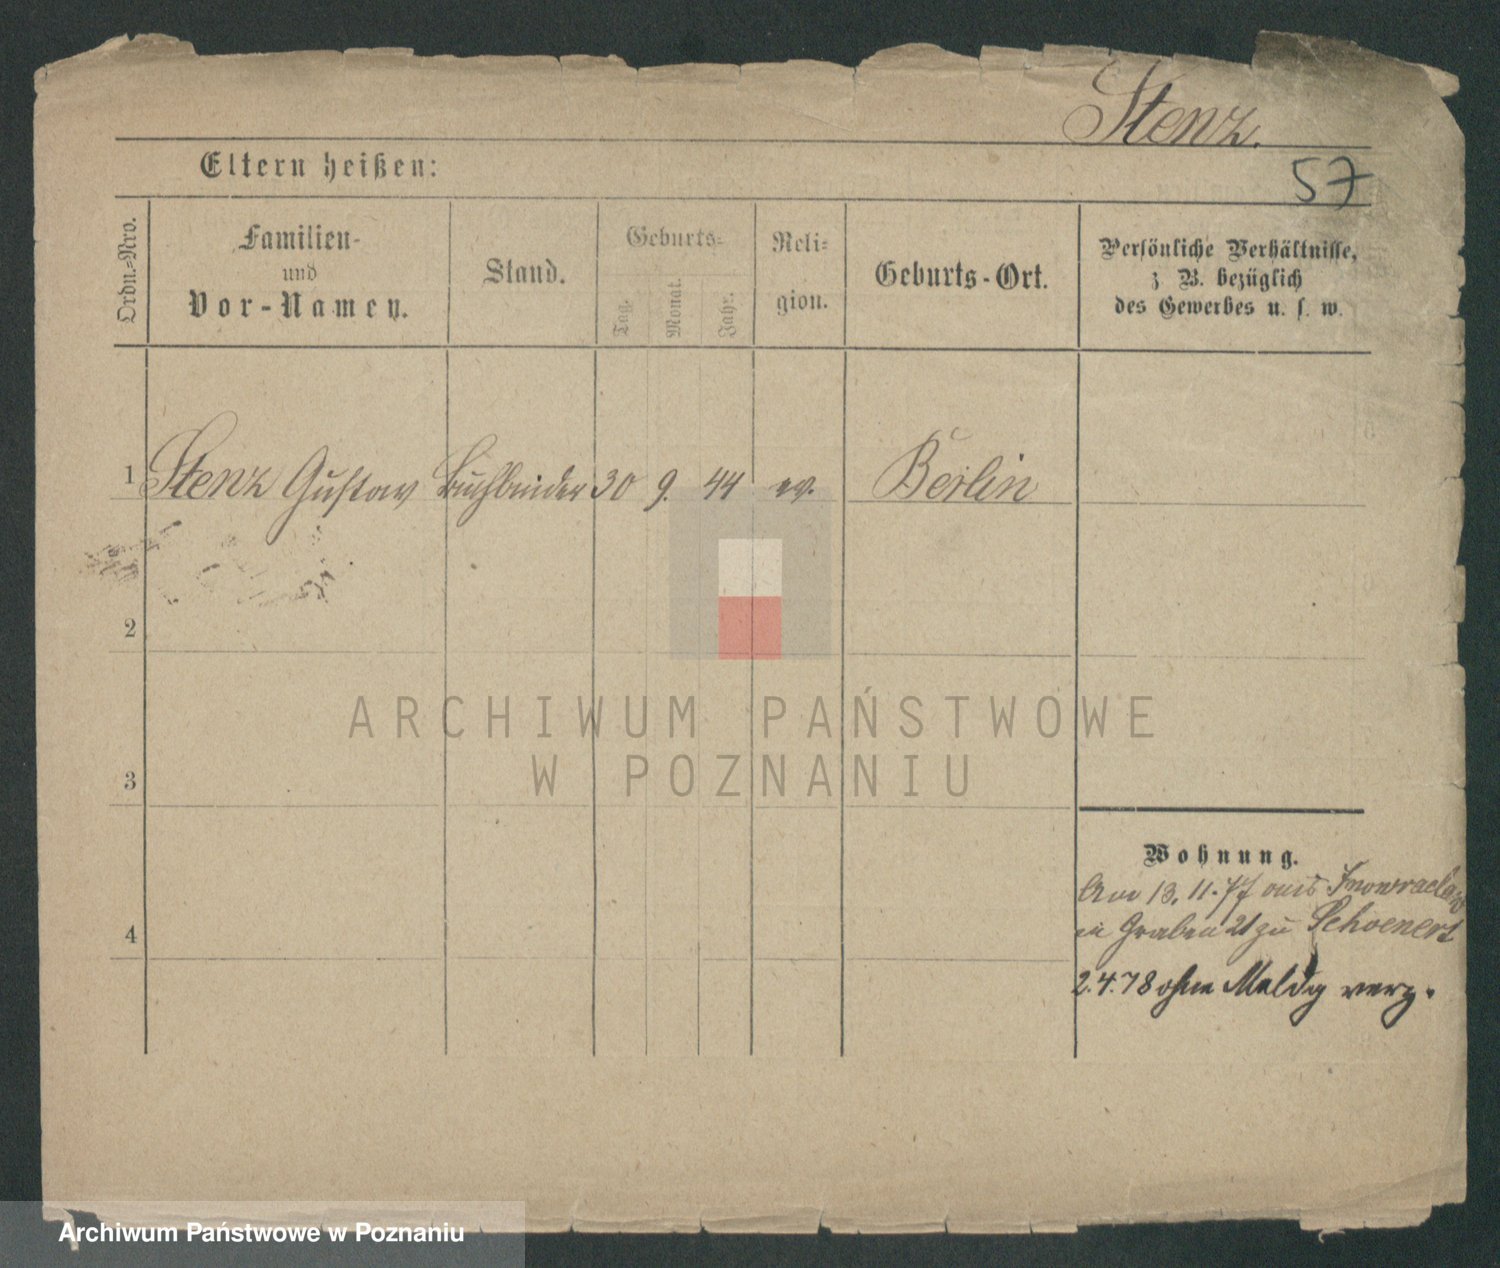 Stenz.
57
Eltern heißen:
Ordn.=Nro.
Familien-
und
Vor-Namen.
Stand.
Geburts=
Tag.
Monat.
Jahr.
Reli=
gion.
Geburts-Ort.
Persönliche Verhältnisse,
z. B. bezüglich
des Gewerbes u. s. w.
1 Stenz Gustav Buchbinder 30 9. 44 ev. Berlin
2
3
4
Wohnung.
Am 13. 11. 77 aus Inowraclaw
in Graben 21 zu Schoenert
2.4.78 ohne Meldg verz.
ARCHIWUM PAŃSTWOWE
W POZNANIU
Archiwum Państwowe w Poznaniu